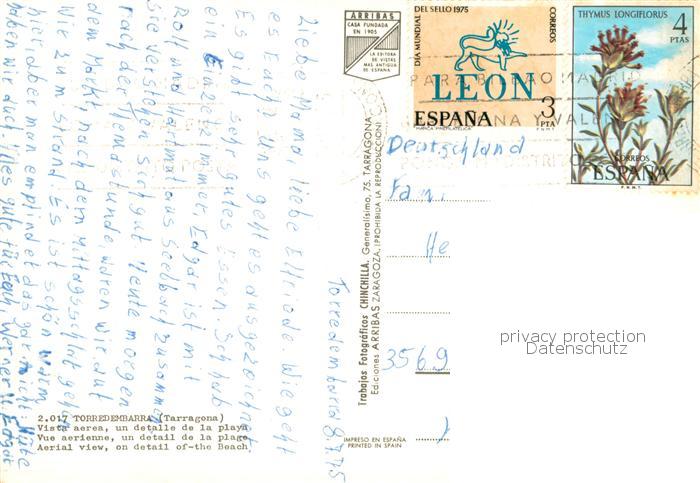 ARRIBAS
CASA FUNDADA
EN 1905
LA EDITORA
DE VISTAS
MAS ANTIGUA
DE ESPAÑA
DIA MUNDIAL DEL SELLO 1975
CORREOS
LEON
ESPAÑA
3
PTA
F.N.M.T.
THYMUS LONGIFLORUS
4
PTAS
CORREOS
ESPAÑA
F.N.M.T.
Torredembarra 8.7.75
Liebe Mama, liebe Elfriede, Wie geht
es Euch? uns geht es ausgezeichnet
Es gibt sehr gutes Essen. Ich hab
ein Einzelzimmer, Edgar ist mit
aus Seelbach zusamm
Sie verstehen sich gut. Heute morgen
nach der waren wir auf
dem Markt, nach dem Mittagsschlaf gehn
Wir zum Strand. Es ist schön warm
hier aber man empfindet das gar nicht.
haben wir auch. Alles gute für Euch, Werner u. Edgar
Deutschland
Fam.
He
3569
Trabajos Fotográficos CHINCHILLA. Generalísimo, 75. TARRAGONA
Ediciones ARRIBAS ZARAGOZA. (PROHIBIDA LA REPRODUCCION)
privacy protection
Datenschutz
2.017 TORREDEMBARRA (Tarragona)
Vista aerea, un detalle de la playa
Vue aerienne, un detail de la plage
Aerial view, on detail of-the Beach
IMPRESO EN ESPAÑA
PRINTED IN SPAIN